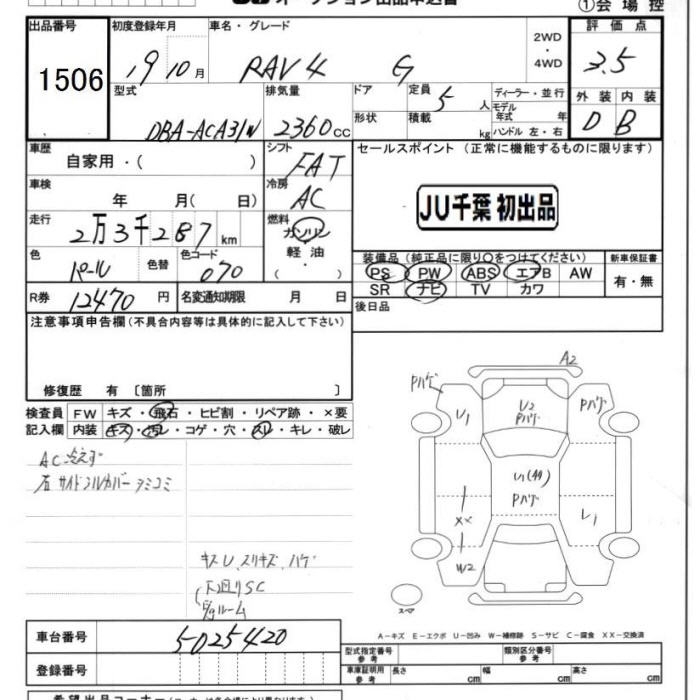 オークション出品申込書
①会場控
出品番号 初度登録年月 車名・グレード 2WD・4WD 評価点
1506 19 10月 RAV4 G 3.5
型式 排気量 ドア 定員 5人 ディーラー・並行 外装 内装
DBA-ACA31W 2360cc 形状 積載 kg モデル年式 年 ハンドル 左・右 D B
車歴 自家用・( ) シフト FAT セールスポイント (正常に機能するものに限ります)
車検 年 月( 日) 冷房 AC JU千葉 初出品
走行 2万3千287km 燃料 ガソリン 軽油 ( ・ )
色 パール 色替 色コード 070
装備品 (純正品に限り○をつけてください) 新車保証書
PS PW ABS エアB AW 有・無
SR ナビ TV カワ
R券 12470円 名変通知期限 月 日 後日品
注意事項申告欄 (不具合内容等は具体的に記入して下さい)
修復歴 有 〔箇所 〕
検査員 FW キズ・飛石・ヒビ割・リペア跡・×要
記入欄 内装 キズ・汚レ・コゲ・穴・スレ・キレ・破レ
AC冷えず
右サイドシルカバー
キスU、スリキズ、ハゲ
下廻りSC
ルーム
A2
Pハゲ U1 U2 Pハゲ Pハゲ
U1(44) Pハゲ
XX
W2
スペア
A-キズ E-エクボ U-凹み W-補修跡 S-サビ C-腐食 XX-交換済
車台番号 5025420
登録番号
型式指定番号 参考 類別区分番号 参考
車庫証明用 参考 長さ cm 幅 cm 高さ cm
希望出品コーナー